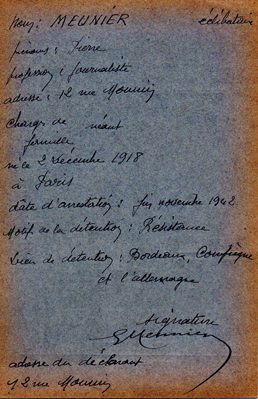 Nom: MEUNIER célibataire
prénoms: Pierre
profession: journaliste
adresse: 12 rue Mounier
charges de néant
famille
né le 2 décembre 1918
à Paris
date d'arrestation: fin novembre 1942
Motif de la détention: Résistance
Lieu de détention: Bordeaux, Compiègne
et l'allemagne
signature
adresse du déclarant
12 rue